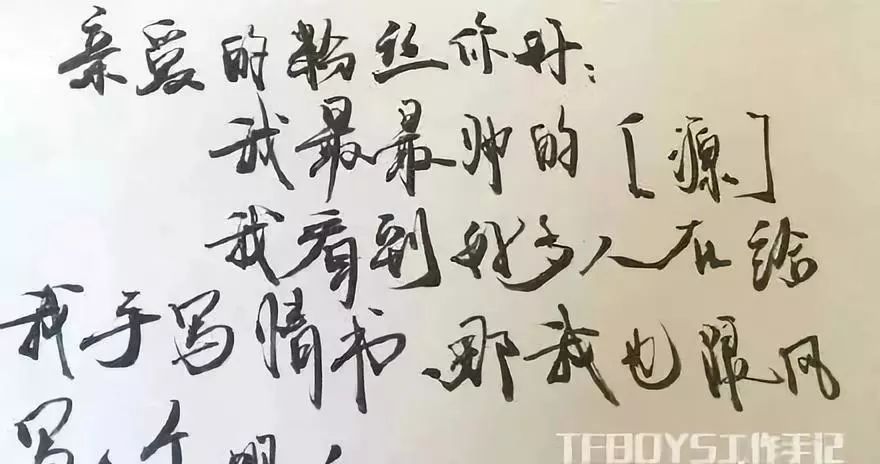 亲爱的粉丝你好:
我最最帅的[源]
我看到好多人在给
我手写情书、那我也跟风
写个
TFBOYS工作手记